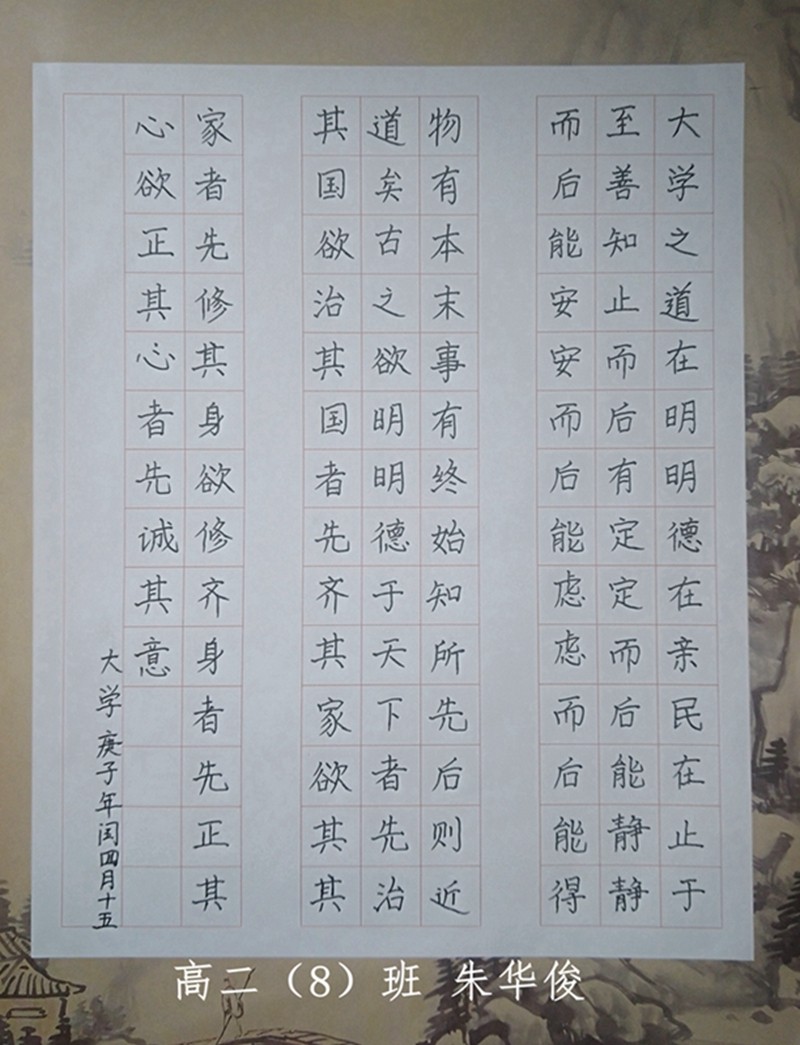 大学之道在明明德在亲民在止于
至善知止而后有定定而后能静静
而后能安安而后能虑虑而后能得
物有本末事有终始知所先后则近
道矣古之欲明明德于天下者先治
其国欲治其国者先齐其家欲其其
家者先修其身欲修齐身者先正其
心欲正其心者先诚其意
大学庚子年闰四月十五
高二（8）班 朱华俊